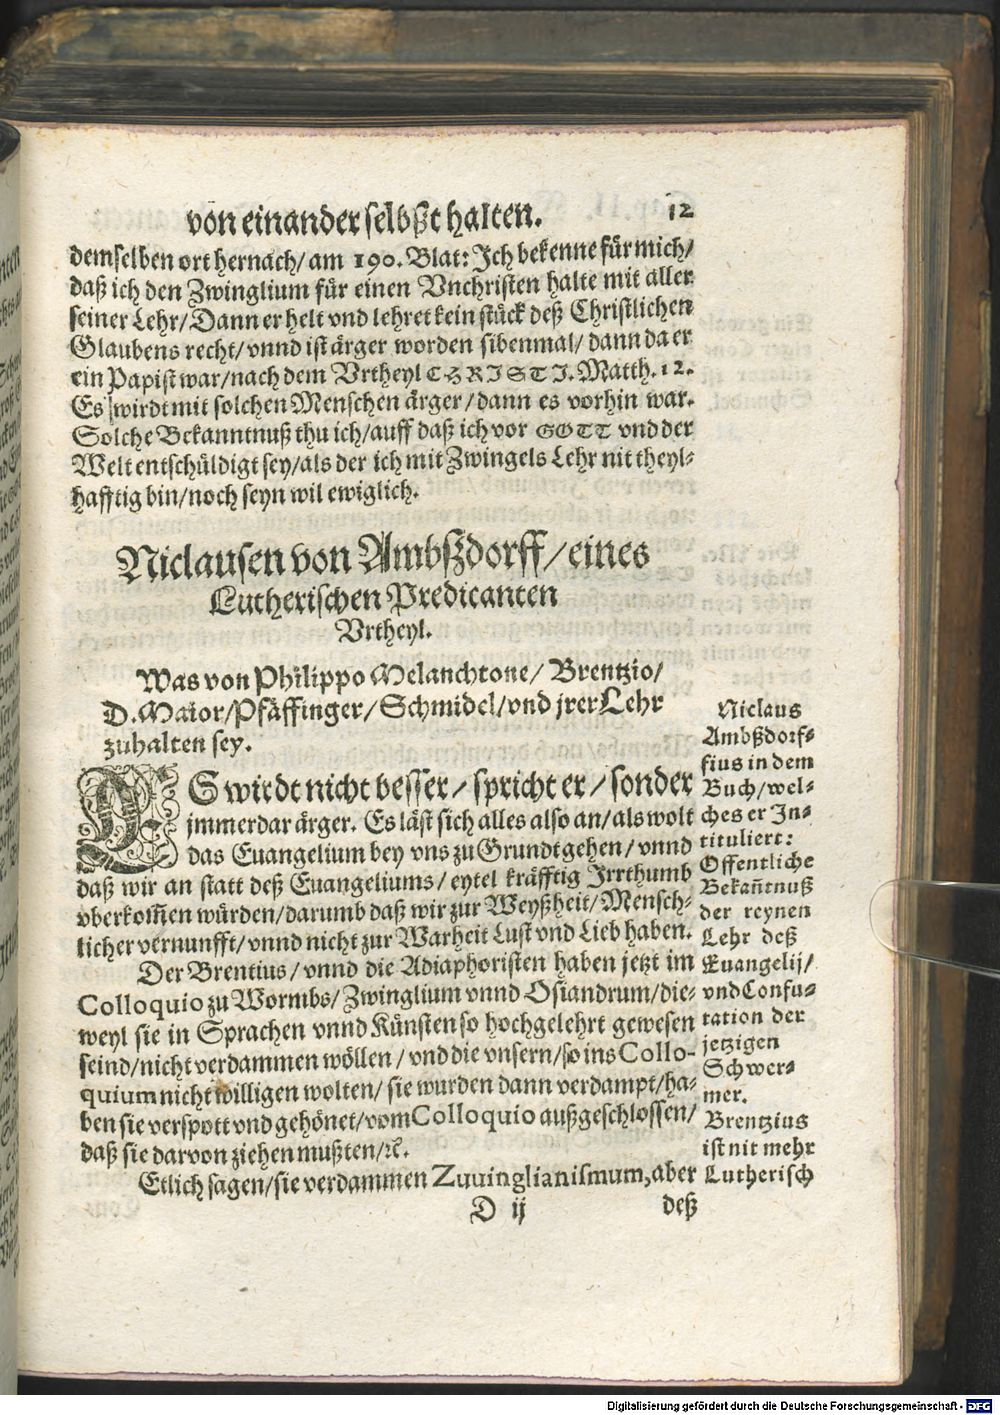 von einander selbßt halten. 12
demselben ort hernach/ am 190. Blat: Ich bekenne für mich/
daß ich den Zwinglium für einen Vnchristen halte mit aller
seiner Lehr/ Dann er helt vnd lehret kein stück deß Christlichen
Glaubens recht/ vnnd ist ärger worden sibenmal/ dann da er
ein Papist war/ nach dem Vrtheyl CHRISTI. Matth. 12.
Es wirdt mit solchen Menschen ärger/ dann es vorhin war.
Solche Bekanntnuß thu ich/ auff daß ich vor GOTT vnd der
Welt entschüldigt sey/ als der ich mit Zwingels Lehr nit theyl-
hafftig bin/ noch seyn wil ewiglich.
Niclausen von Ambßdorff/ eines
Lutherischen Predicanten
Vrtheyl.
Was von Philippo Melanchtone/ Brentzio/
D. Maior/ Pfäffinger/ Schmidel/ vnd jrer Lehr
zuhalten sey.
ES wirdt nicht besser/ spricht er/ sonder
jmmerdar ärger. Es läst sich alles also an/ als wolt
das Euangelium bey vns zu Grundt gehen/ vnnd
daß wir an statt deß Euangeliums/ eytel kräfftig Irrthumb
vberkom̃en würden/ darumb daß wir zur Weyßheit/ Mensch-
licher vernunfft/ vnnd nicht zur Warheit Lust vnd Lieb haben.
Der Brentius/ vnnd die Adiaphoristen haben jetzt im
Colloquio zu Wormbs/ Zwinglium vnnd Osiandrum/ die-
weyl sie in Sprachen vnnd Künsten so hochgelehrt gewesen
seind/ nicht verdammen wöllen/ vnd die vnsern/ so ins Collo-
quium nicht willigen wolten/ sie wurden dann verdampt/ ha-
ben sie verspott vnd gehönet/ vom Colloquio außgeschlossen/
daß sie darvon ziehen mußten/ ꝛc.
Etlich sagen/ sie verdammen Zuuinglianismum, aber
D ij deß
Niclaus
Ambßdorf-
fius in dem
Buch/ wel-
ches er In-
tituliert:
Offentliche
Bekañtnuß
der reynen
Lehr deß
Euangelij/
vnd Confu-
tation der
jetzigen
Schwer-
mer.
Brentzius
ist nit mehr
Lutherisch
Digitalisierung gefördert durch die Deutsche Forschungsgemeinschaft - DFG